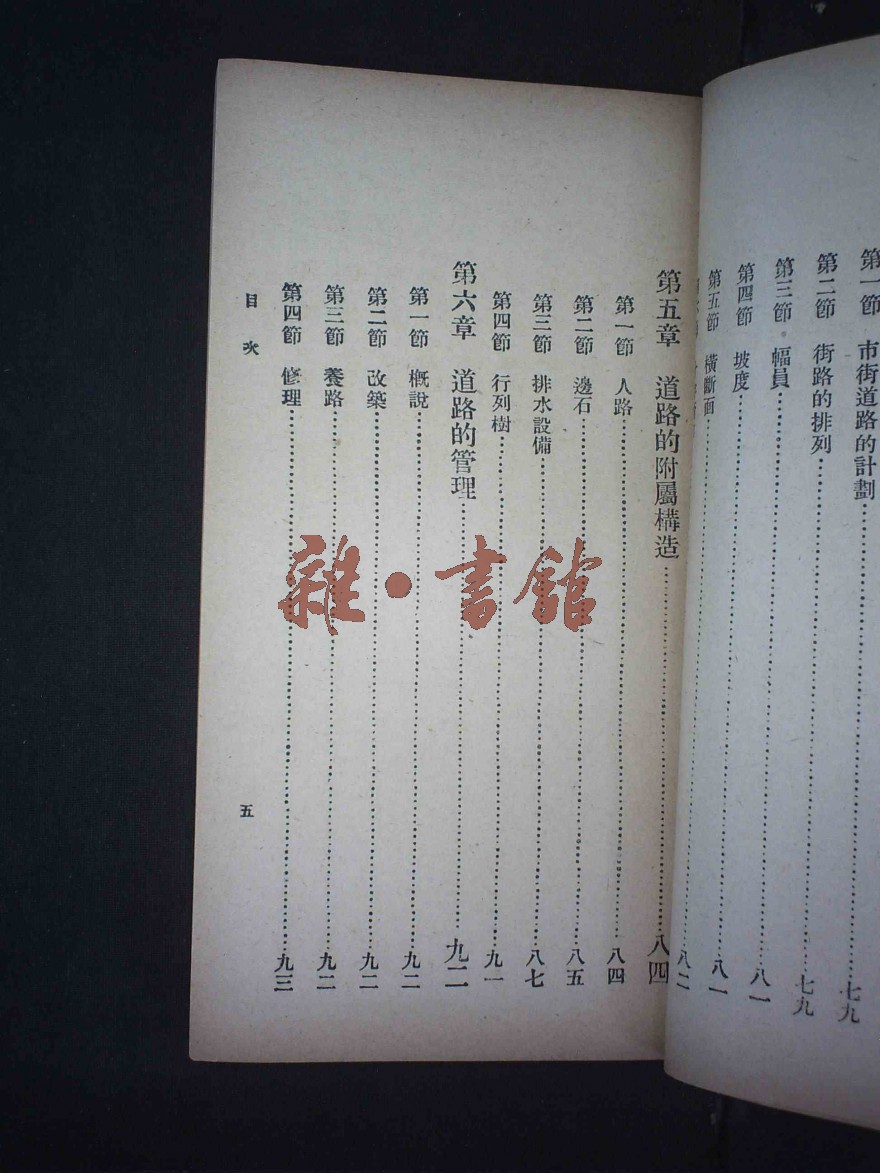 第一節 市街道路的計劃……七九
第二節 街路的排列……七九
第三節 幅員……八一
第四節 坡度……八一
第五節 橫斷面……八二
第五章 道路的附屬構造……八四
第一節 人路……八四
第二節 邊石……八五
第三節 排水設備……八七
第四節 行列樹……九一
第六章 道路的管理……九二
第一節 概說……九二
第二節 改築……九二
第三節 養路……九二
第四節 修理……九三
目次
五
雜·書館